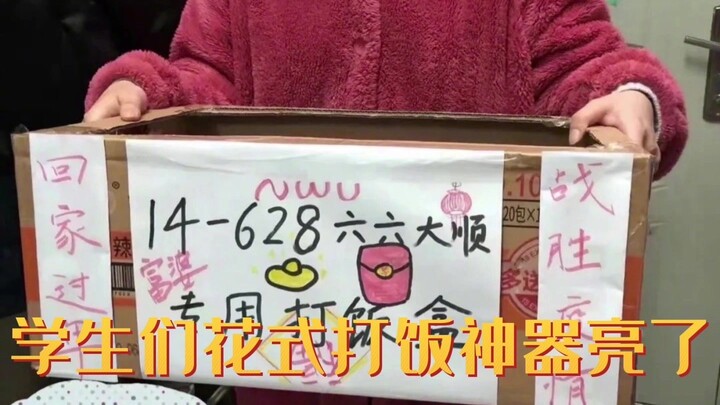 回家过年
NWU
14-628六六大顺
富婆
专周打饭盒
战胜疫情
.10
20包×1
多送
辣
学生们花式打饭神器亮了